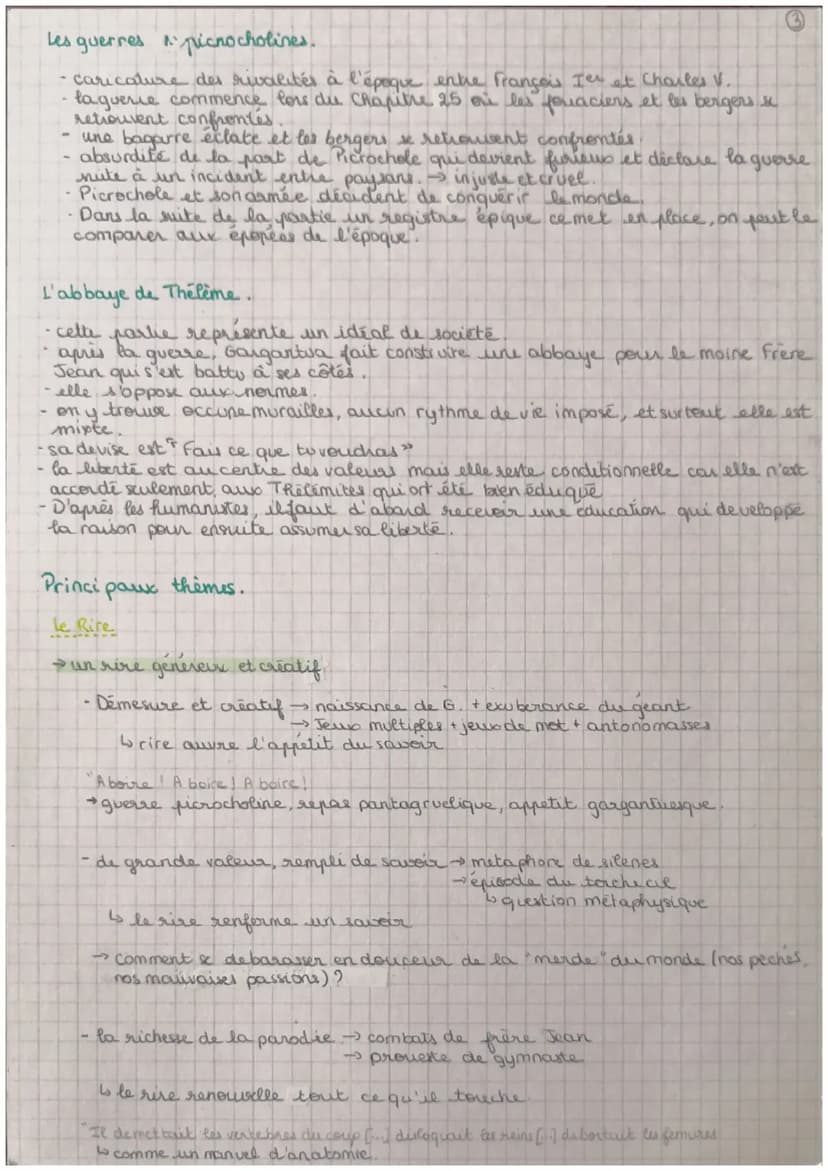 3
Les guerres picnocholines.
- caricature des rivalités à l'époque entre François Ier et Charles V.
- la guerre commence lors du Chapitre 25 où les fouaciers et les bergers se
retrouvent confrontés.
- une bagarre éclate et les bergers se retrouvent confrontés.
- absurdité de la part de Picrochole qui devient furieux et déclare la guerre
suite à un incident entre paysans. → injuste et cruel.
- Picrochole et son armée décident de conquérir le monde.
- Dans la suite de la partie un registre épique ce met en place, on peut le
comparer aux épopées de l'époque.
L'abbaye de Thélème.
- cette partie représente un idéal de société.
- après la guerre, Gargantua fait construire une abbaye pour le moine Frère
Jean qui s'est battu à ses côtés.
- elle s'oppose aux normes.
- on y trouve occune murailles, aucun rythme de vie imposé, et surtout elle est
mixte.
- sa devise est "Fais ce que tu voudras"
- la liberté est au centre des valeurs mais elle reste conditionnelle car elle n'est
accordé seulement, aux Thélémites qui ont été bien éduqué
- D'après les humanistes, il faut d'abord recevoir une éducation qui developpe
la raison pour ensuite assumer sa liberté.
Principaux thèmes.
Le Rire
→ un rire généreux et créatif
- Démesure et créatif → naissance de G. + exuberance du géant
→ Jeux multiples + jeux de mot + antonomasses
↳ rire ouvre l'appétit du savoir
"A boire ! A boire ! A boire !
→ guerre picrocholine, repas pantagruelique, appetit gargantuesque.
- de grande valeur, rempli de savoir → métaphore de silènes
→ épisode du torchecul
↳ question métaphysique
↳ le rire renferme un savoir
→ comment se debarasser en douceur de la "merde" du monde (nos péchés,
nos mauvaises passions) ?
- la richesse de la parodie → combats de frère Jean
→ prouesse de gymnaste
↳ le rire renouvelle tout ce qu'il touche.
"Il demettait les vertebres du coup [...] disloquait les reins [...] debortait les femures
↳ comme un manuel d'anatomie.